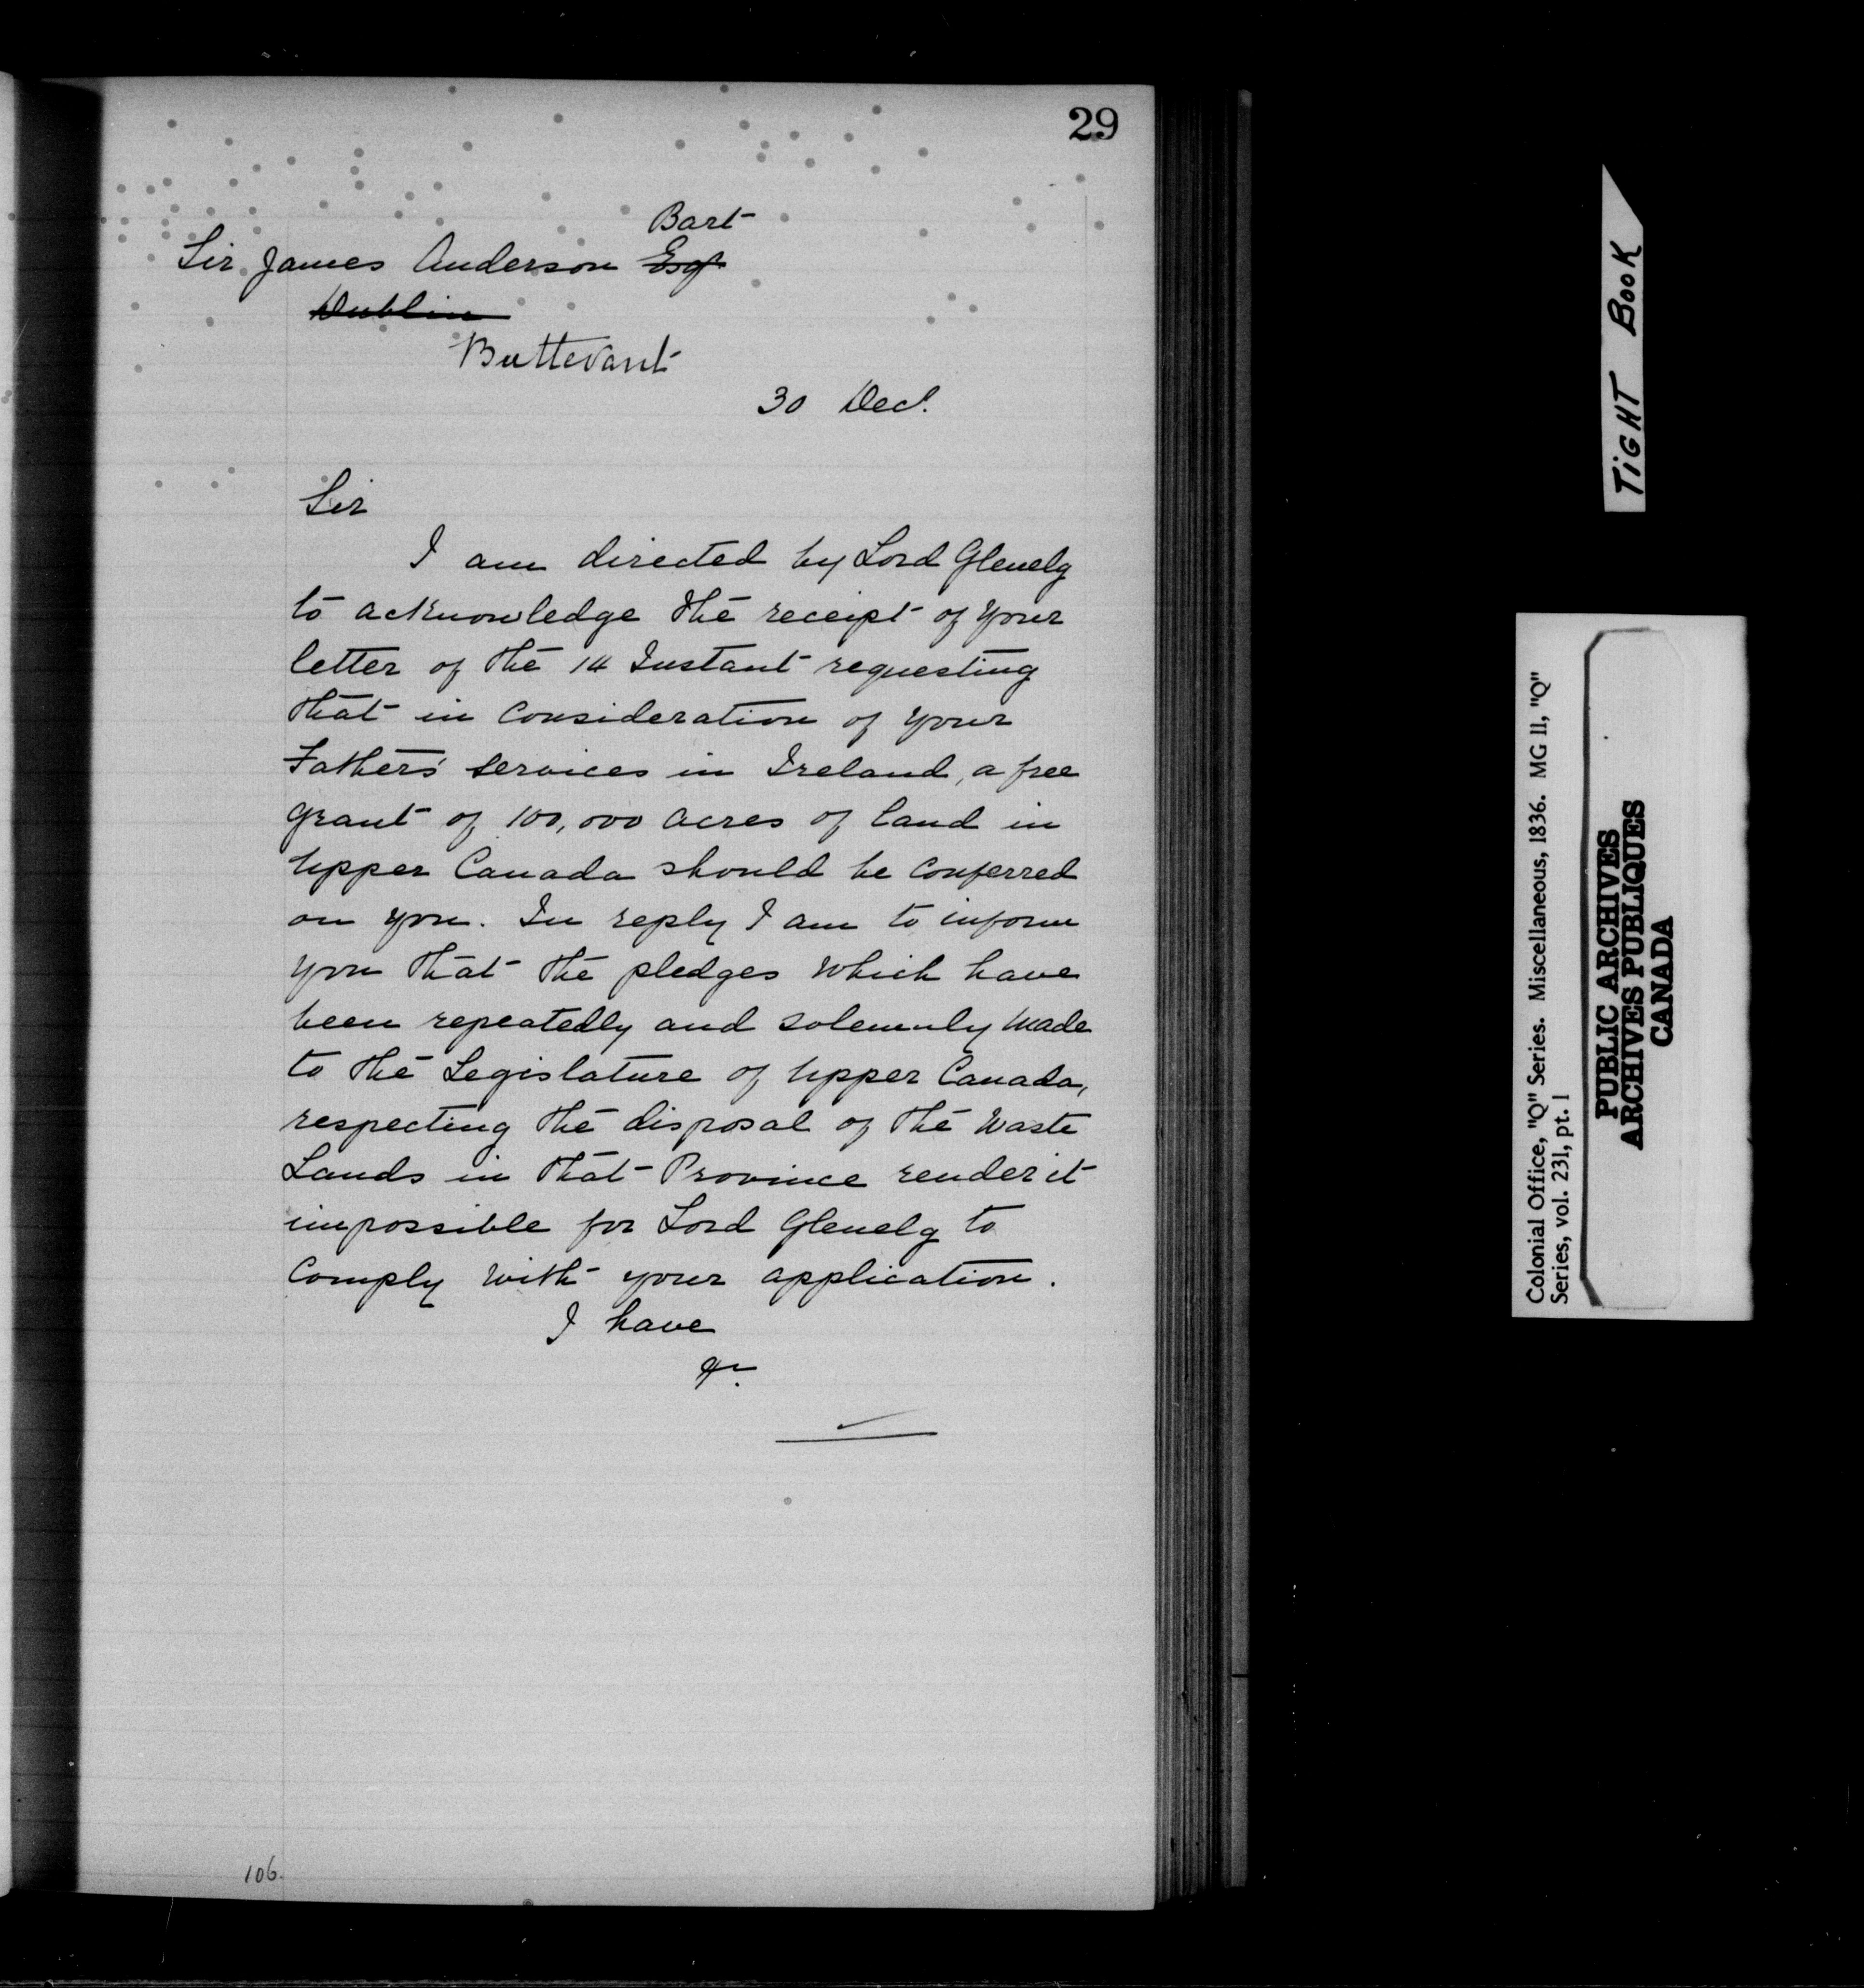 29
Bart
Sir James Anderson Esqr
Dublin
Buttevant
30 Decr.
Sir
I am directed by Lord Glenelg
to acknowledge the receipt of your
letter of the 14 Instant requesting
that in consideration of your
Father's services in Ireland, a free
grant of 100,000 acres of land in
Upper Canada should be conferred
on you. In reply I am to inform
you that the pledges which have
been repeatedly and solemnly made
to the Legislature of Upper Canada,
respecting the disposal of the Waste
Lands in that Province render it
impossible for Lord Glenelg to
comply with your application.
I have
&c.
106.
TIGHT BOOK
Colonial Office, "Q" Series. Miscellaneous, 1836. MG 11, "Q"
Series, vol. 231, pt. 1
PUBLIC ARCHIVES
ARCHIVES PUBLIQUES
CANADA